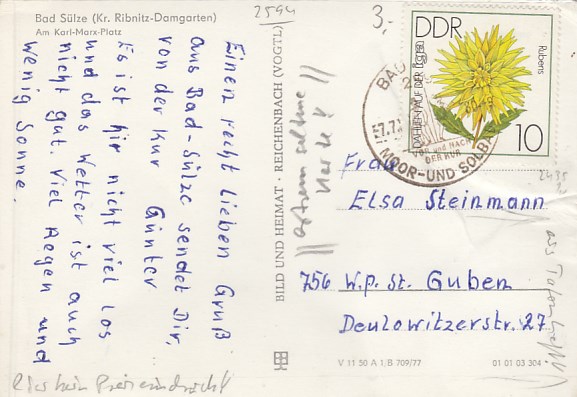 Bad Sülze (Kr. Ribnitz-Damgarten)
Am Karl-Marx-Platz
2594
3,-
Einen recht lieben Gruß
aus Bad-Sülze sendet Dir,
von der Kur Günter
Es ist hir nicht viel los
und das Wetter ist auch
nicht gut. Viel Regen und
wenig Sonne.
BILD UND HEIMAT · REICHENBACH (VOGTL)
extrem seltene
Karte!
DDR
Rubens
10
BAD
VOR und NACH
DER KUR
MOOR-UND SOLBAD
Frau
Elsa Steinmann
756 W.P.St. Guben
Deulowitzerstr. 27
V 11 50 A 1/B 709/77
01 01 03 304